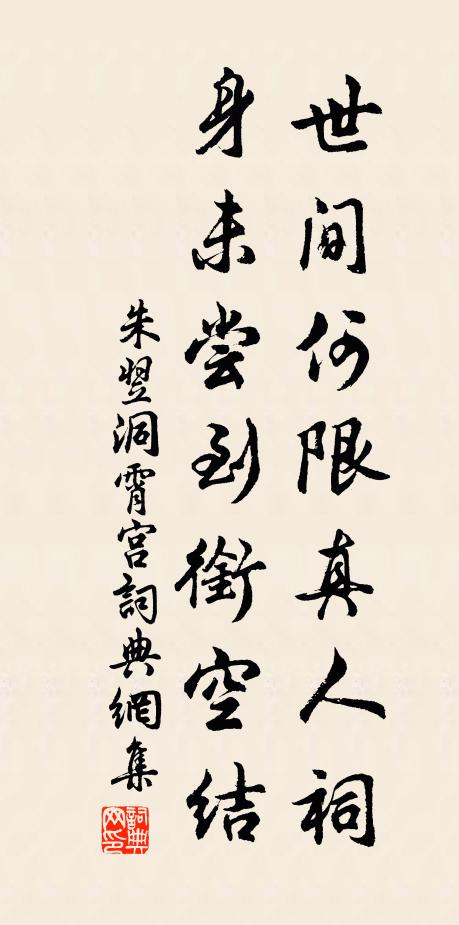 世间何限真人祠
身未尝到衔空结
朱翌洞霄宫詞典網集
詞典网印